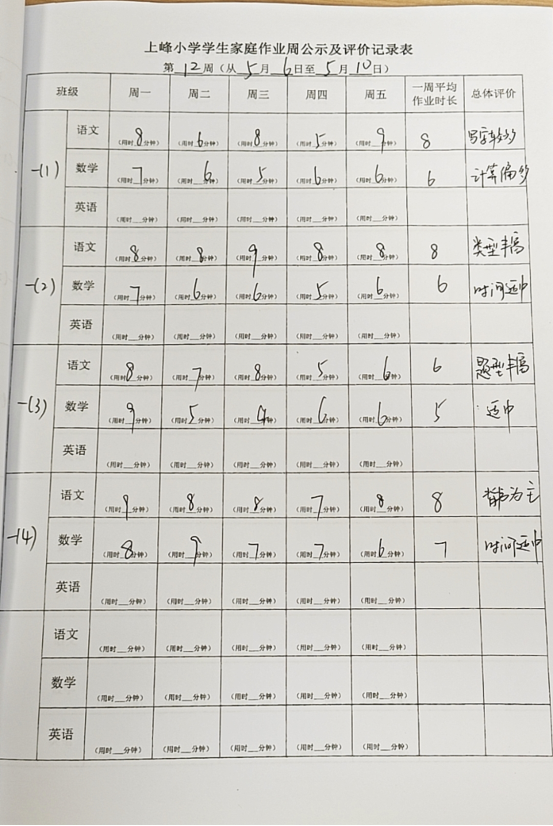 上峰小学学生家庭作业周公示及评价记录表
第 12 周（从 5 月 6 日至 5 月 10 日）
班级 周一 周二 周三 周四 周五 一周平均作业时长 总体评价
一(1) 语文 （用时 8 分钟） （用时 6 分钟） （用时 8 分钟） （用时 5 分钟） （用时 9 分钟） 8 写字较多
数学 （用时 7 分钟） （用时 6 分钟） （用时 5 分钟） （用时 6 分钟） （用时 6 分钟） 6 计算偏多
英语 （用时__分钟） （用时__分钟） （用时__分钟） （用时__分钟） （用时__分钟）
一(2) 语文 （用时 8 分钟） （用时 8 分钟） （用时 9 分钟） （用时 8 分钟） （用时 8 分钟） 8 类型丰富
数学 （用时 7 分钟） （用时 6 分钟） （用时 6 分钟） （用时 5 分钟） （用时 6 分钟） 6 时间适中
英语 （用时__分钟） （用时__分钟） （用时__分钟） （用时__分钟） （用时__分钟）
一(3) 语文 （用时 8 分钟） （用时 7 分钟） （用时 8 分钟） （用时 5 分钟） （用时 6 分钟） 6 题型丰富
数学 （用时 9 分钟） （用时 5 分钟） （用时 分钟） （用时 6 分钟） （用时 6 分钟） 5 适中
英语 （用时__分钟） （用时__分钟） （用时__分钟） （用时__分钟） （用时__分钟）
一(4) 语文 （用时 分钟） （用时 8 分钟） （用时 8 分钟） （用时 7 分钟） （用时 8 分钟） 8 为主
数学 （用时 8 分钟） （用时 9 分钟） （用时 7 分钟） （用时 7 分钟） （用时 6 分钟） 7 时间适中
英语 （用时__分钟） （用时__分钟） （用时__分钟） （用时__分钟） （用时__分钟）
语文 （用时__分钟） （用时__分钟） （用时__分钟） （用时__分钟） （用时__分钟）
数学 （用时__分钟） （用时__分钟） （用时__分钟） （用时__分钟） （用时__分钟）
英语 （用时__分钟） （用时__分钟） （用时__分钟） （用时__分钟） （用时__分钟）